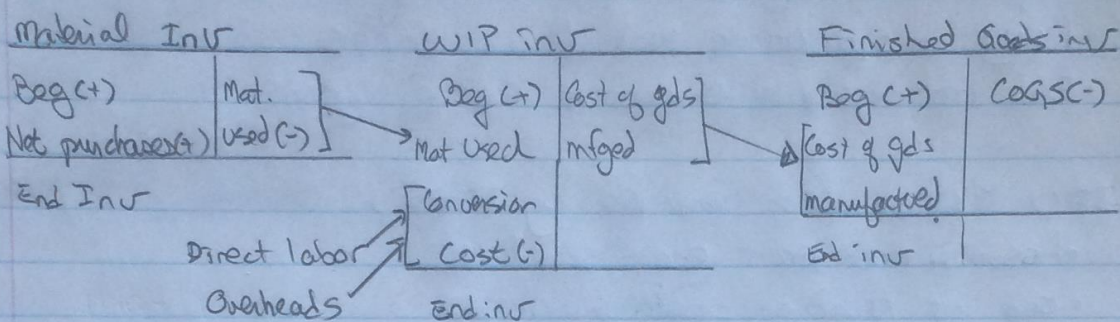 Material Inv
Beg (+)
Net purchases(+)
Mat.
used (-)
End Inv
WIP inv
Beg (+)
Mat Used
Conversion
Cost (-)
Direct labor
Overheads
Cost of gds
mfged
End inv
Finished Goods inv
Beg (+)
Cost of gds
manufactued
COGS(-)
End inv